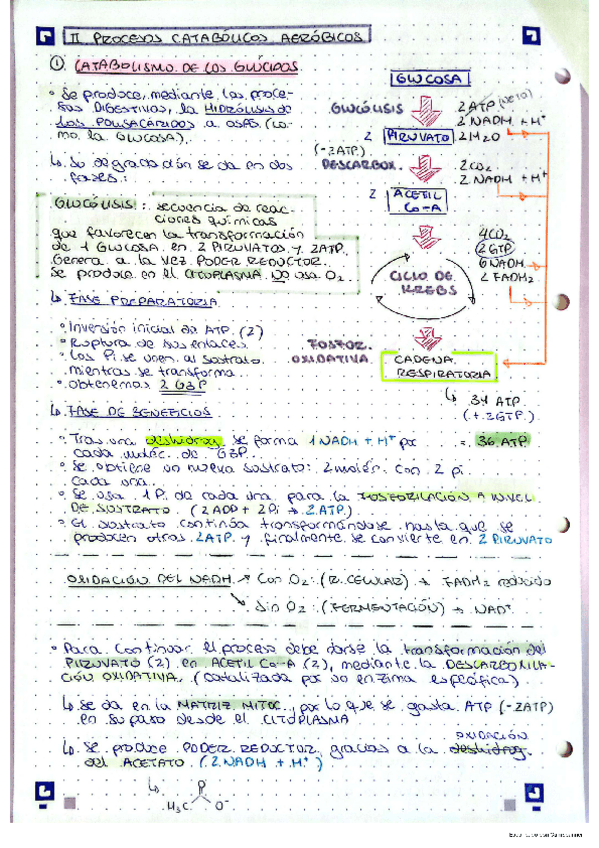 II PROCESOS CATABÓLICOS AERÓBICOS
① CATABOLISMO DE LOS GLÚCIDOS
• Se produce, mediante los proce-
sos DIGESTIVOS, la HIDRÓLISIS DE
LOS POLISACÁRIDOS a OSAS. (co-
mo la GLUCOSA).
↳ Su degradación se da en dos
fases:
GLUCÓLISIS: secuencia de reac-
ciones químicas
que favorecen la transformación
de 1 GLUCOSA en 2 PIRUVATOS y 2ATP.
Genera a la vez PODER REDUCTOR.
Se produce en el CITOPLASMA. NO usa O₂.
GLUCOSA
GLUCÓLISIS
2 ATP (neto)
2 NADH + H⁺
2 PIRUVATO 2 H₂O
(-2ATP)
DESCARBOX.
2CO₂
2 NADH + H⁺
2 ACETIL
Co-A
4CO₂
2 GTP
6 NADH
2 FADH₂
CICLO DE
KREBS
FOSFOR.
OXIDATIVA
CADENA
RESPIRATORIA
↳ 34 ATP
(+ 2GTP)
= 36 ATP
↳ FASE PREPARATORIA
• Inversión inicial de ATP. (2)
• Ruptura de sus enlaces
• Los Pi se unen al sustrato
mientras se transforma.
• Obtenemos 2 G3P
↳ FASE DE BENEFICIOS
• Tras una deshidrog. se forma 1 NADH + H⁺ por
cada moléc. de G3P.
• Se obtiene un nuevo sustrato: 2 moléc. con 2 pi
cada una.
• Se usa 1 Pi de cada una para la FOSFORILACIÓN A NIVEL
DE SUSTRATO. (2 ADP + 2 Pi → 2 ATP)
• El sustrato continúa transformándose hasta que se
producen otros 2ATP y finalmente se convierte en 2 PIRUVATO
OXIDACIÓN DEL NADH → Con O₂: (R. CELULAR) → FADH₂ reducido
↘ Sin O₂: (FERMENTACIÓN) → NAD⁺
• Para continuar el proceso debe darse la transformación del
PIRUVATO (2) en ACETIL Co-A (2), mediante la DESCARBONILA-
CIÓN OXIDATIVA. (catalizada por un enzima específica).
↳ Se da en la MATRIZ MITOC. por lo que se gasta ATP (-2ATP)
en su paso desde el CITOPLASMA
OXIDACIÓN
↳ Se produce PODER REDUCTOR gracias a la deshidrog.
del ACETATO. (2 NADH + H⁺)
↳ H₃C O⁻